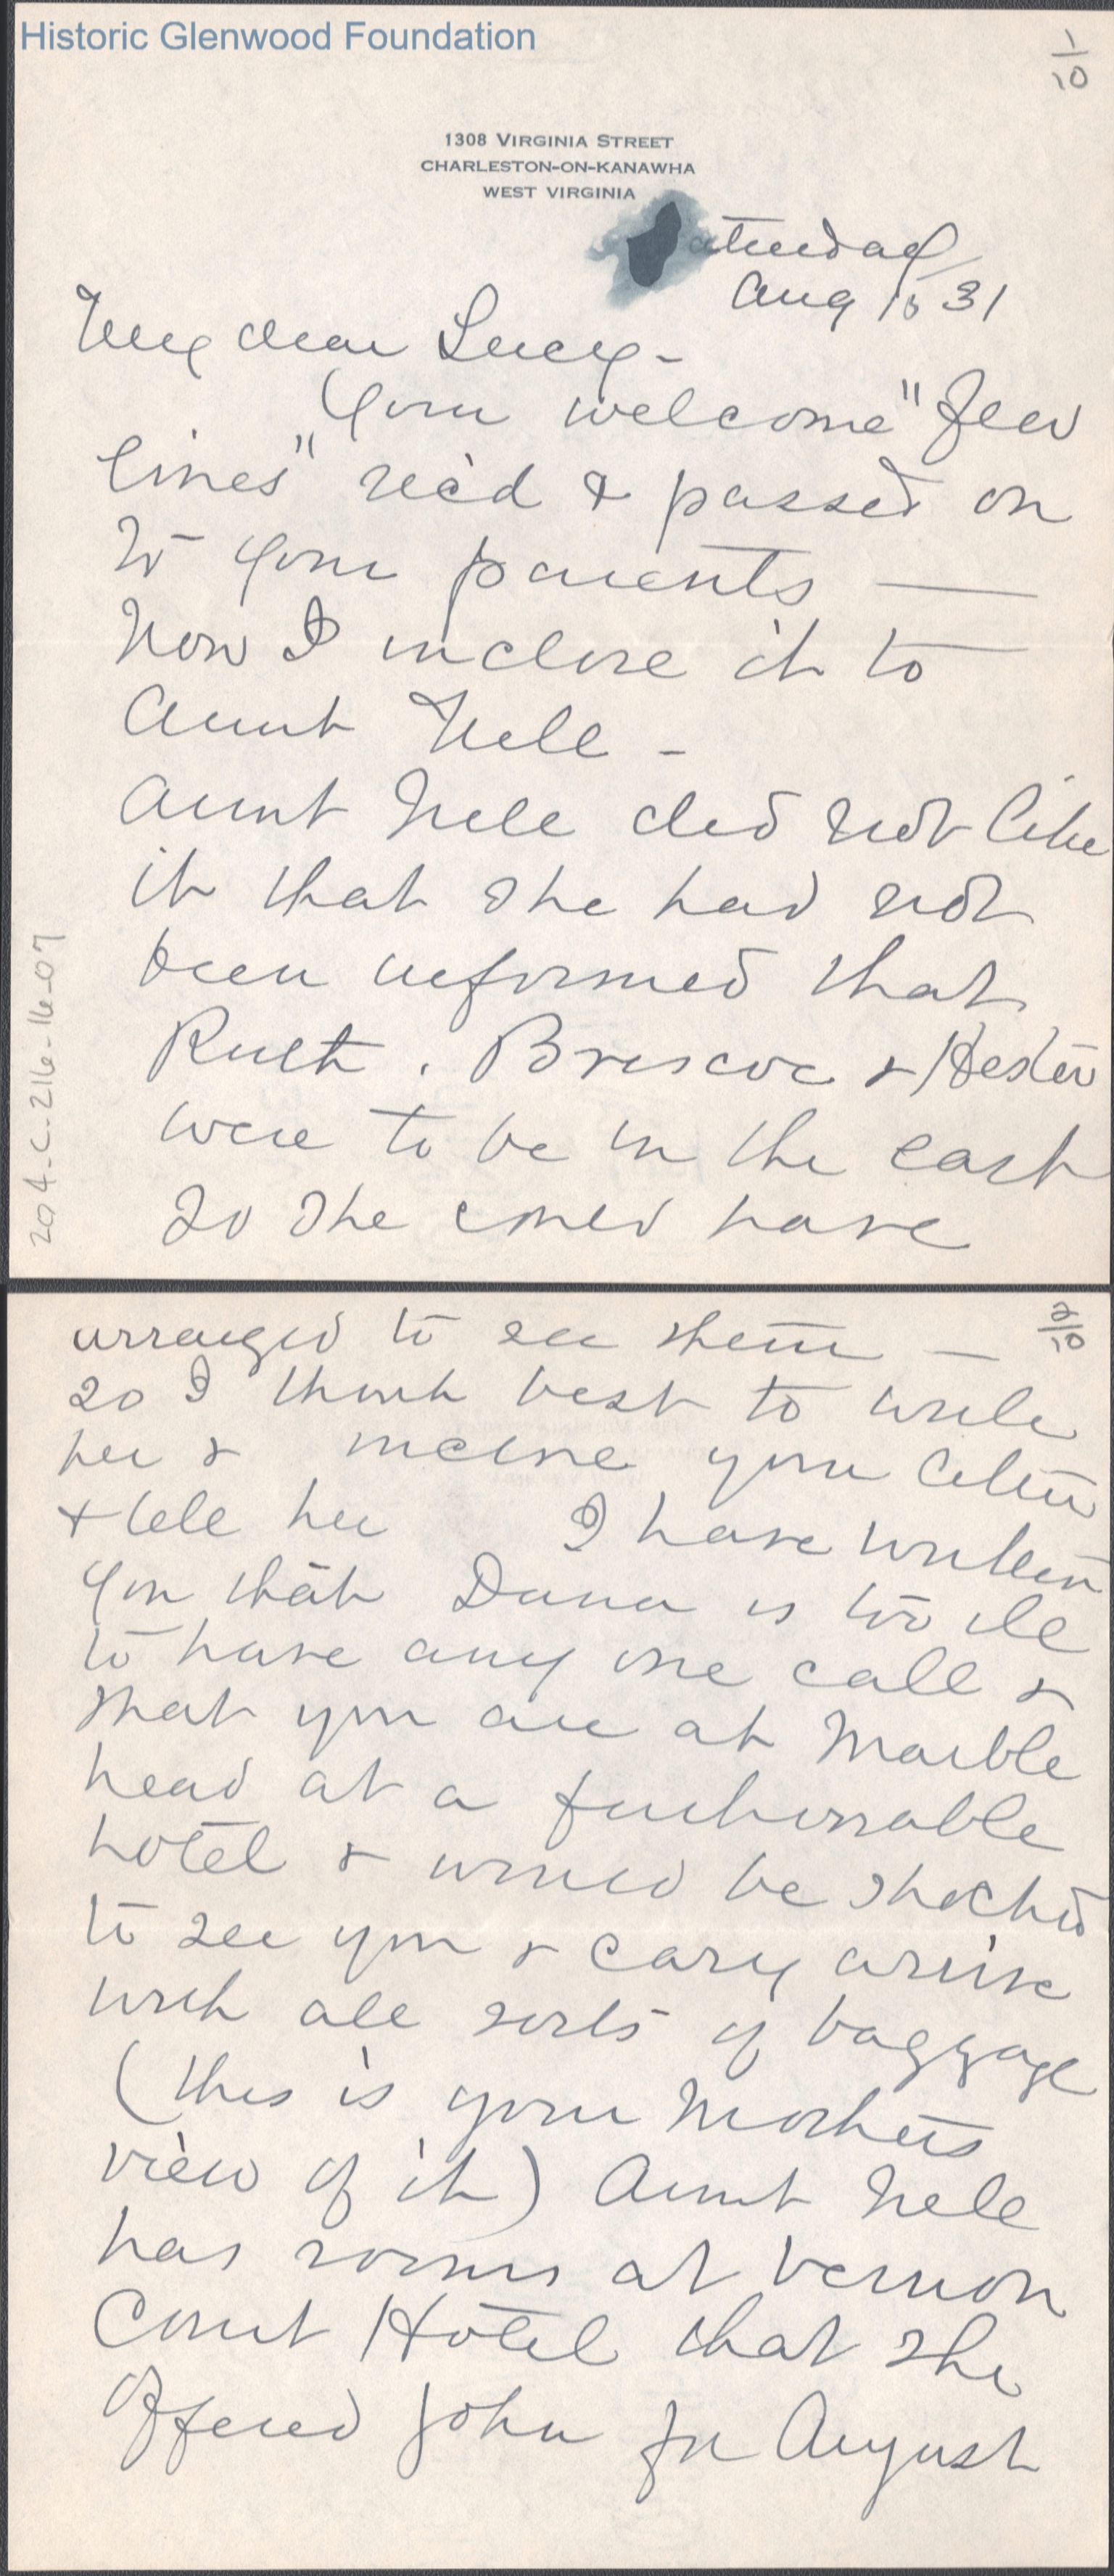 Historic Glenwood Foundation
1/10
1308 VIRGINIA STREET
CHARLESTON-ON-KANAWHA
WEST VIRGINIA
aturday
Aug 15 31
My dear Lucy-
Your welcome "few
lines" rec'd & passed on
to your parents —
Now I inclose it to
Aunt Nell -
Aunt Nell did not like
it that she had not
been informed that
Ruth. Briscoe & Hester
were to be in the east
so she could have
204-C-216-16-07
2/10
arranged to see them —
so I think best to write
her & inclose your letter
& tell her I have written
you that Dana is too ill
to have any one call &
that you are at Marble
head at a fashionable
hotel & would be shocked
to see you & Cary arrive
with all sorts of baggage
(this is your Mothers
view of it) Aunt Nell
has rooms at Vernon
Court Hotel that she
offered John for August